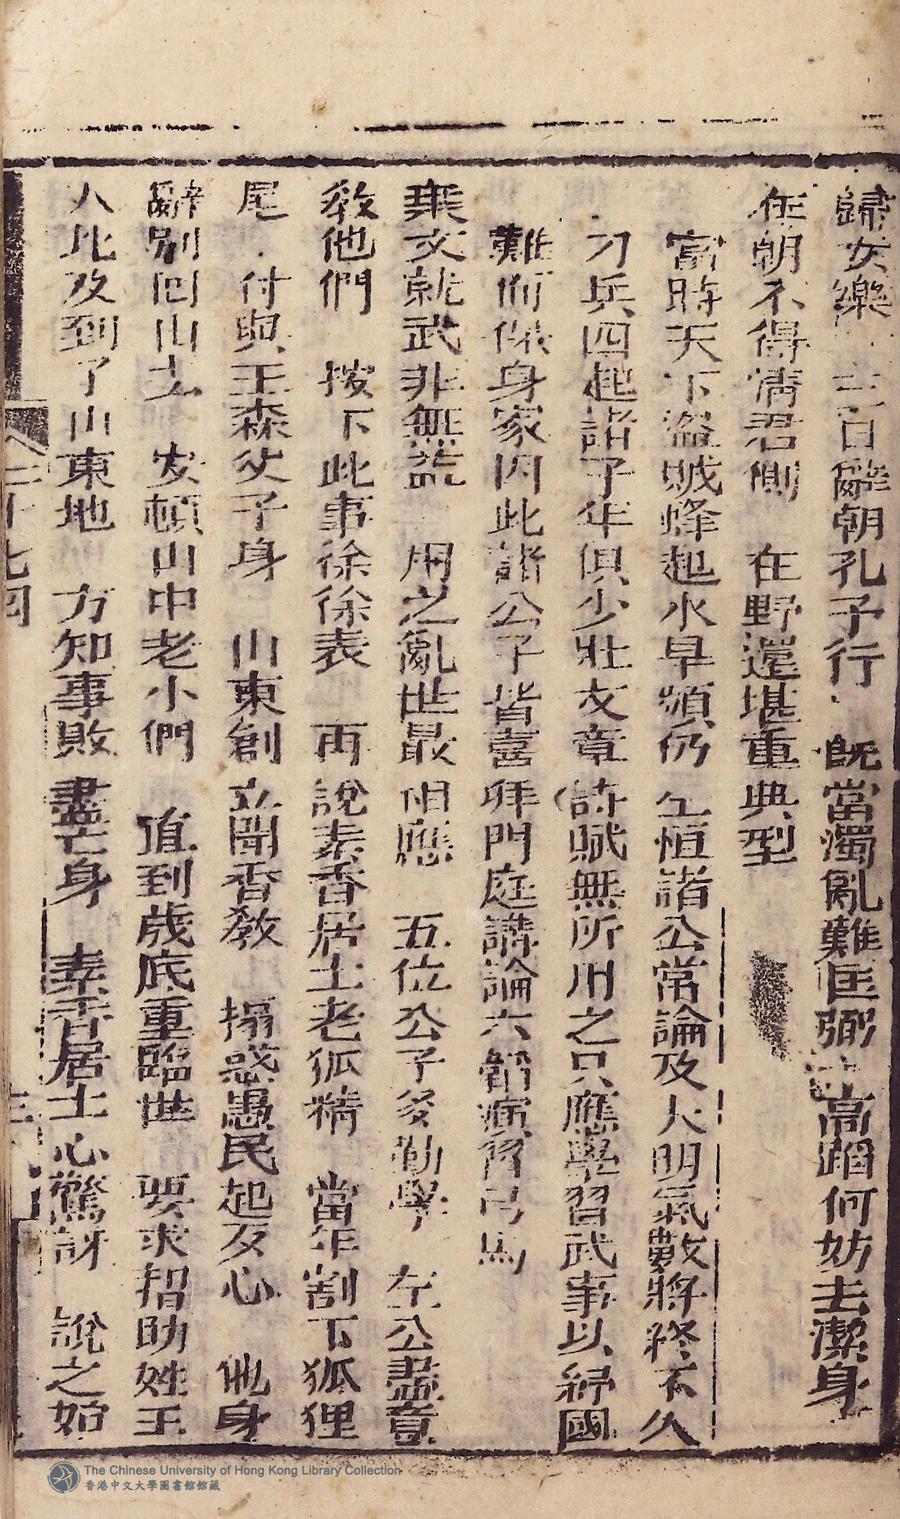 歸女樂 三日辭朝孔子行 旣當濁亂難匡弼 高蹈何妨去潔身
在朝不得淸君側 在野還堪重典型
當時天下盜賊蜂起水旱頻仍左恒諸公常論及大明氣數將終不久
刀兵四起諸子年俱少壯文章詩賦無所用之只應學習武事以紓國
難而保身家因此諸公子皆喜拜門庭講論六韜演習弓馬
棄文就武非無益 用之亂世最相應 五位公子多勤學 左公盡意
敎他們 按下此事徐徐表 再說素香居士老狐精 當年割下狐狸
尾 付與王森父子身 山東創立聞香敎 搧惑愚民起反心 他身
辭別回山去 安頓山中老小們 直到歲底重臨世 要求招助姓王
人比及到了山東地 方知事敗盡亡身 素香居士心驚訝 說之始
二十七回
The Chinese University of Hong Kong Library Collection
香港中文大學圖書館館藏